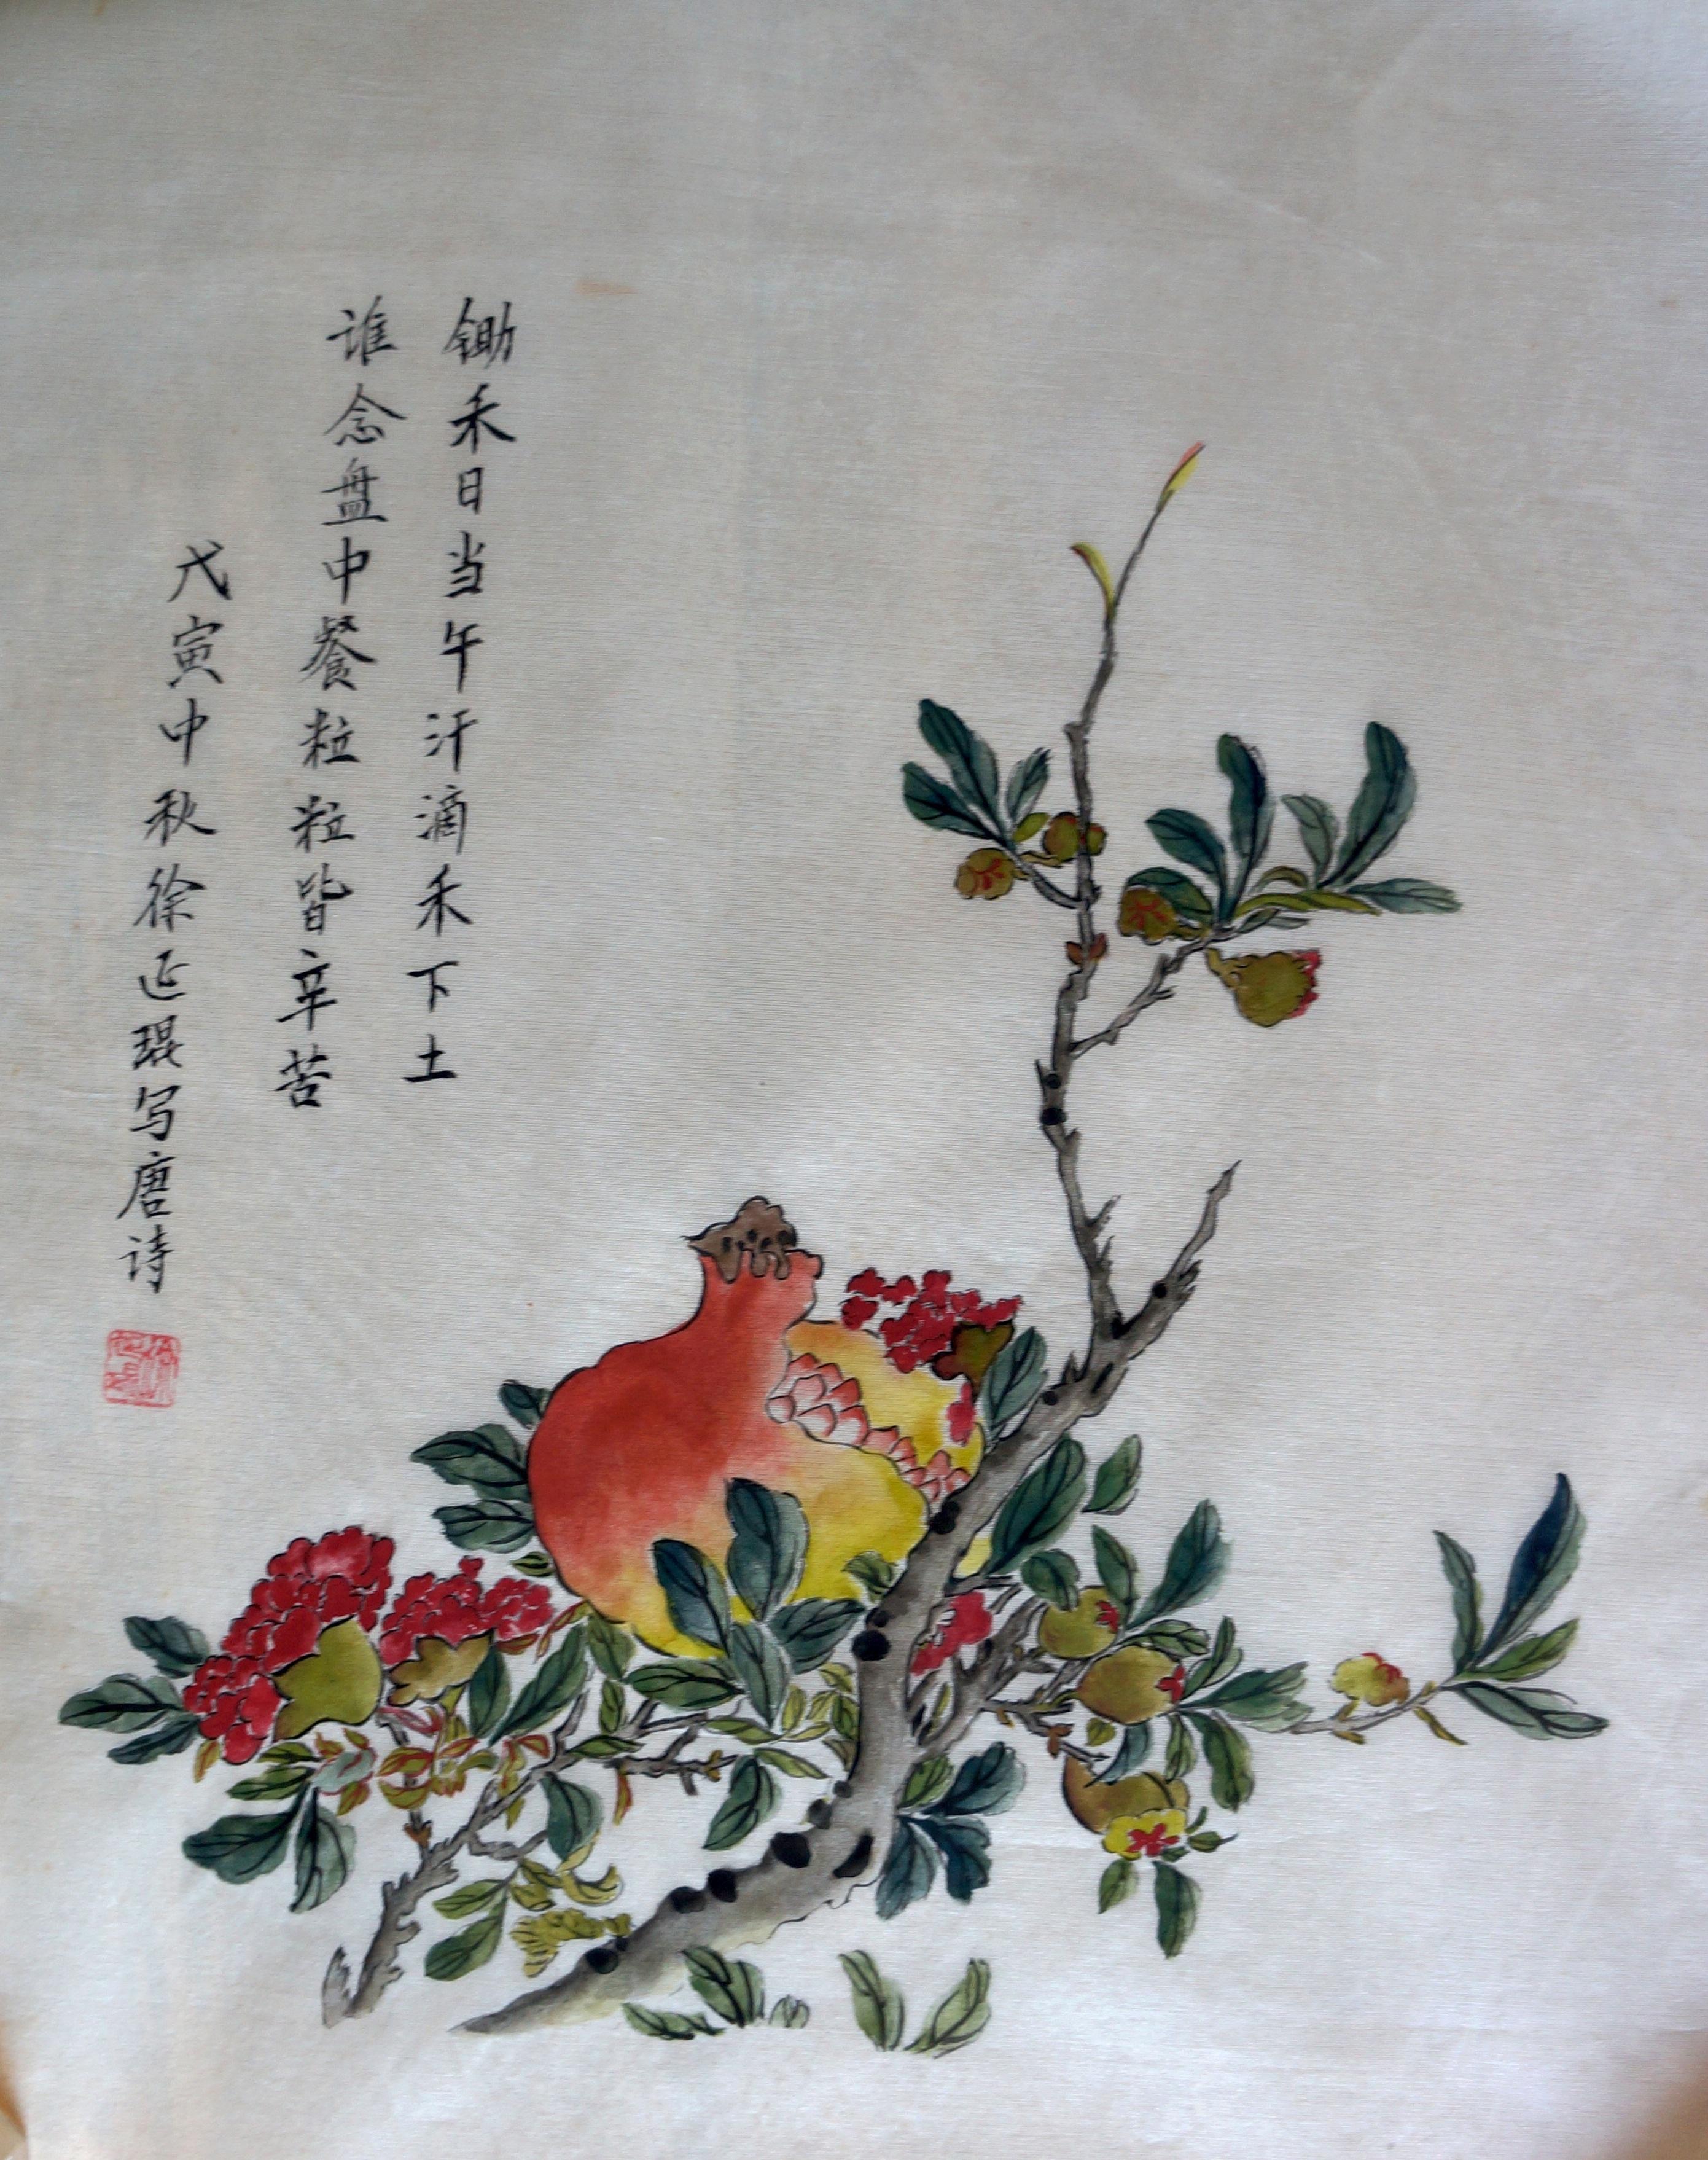 锄禾日当午汗滴禾下土
谁念盘中餐粒粒皆辛苦
戊寅中秋徐延琨写唐诗